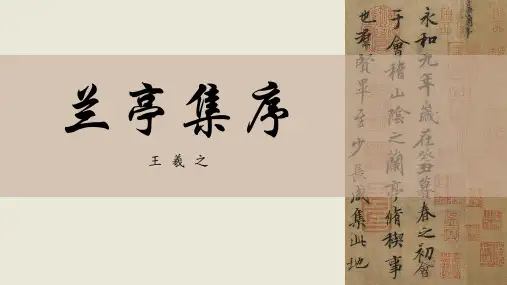 兰亭集序
王羲之
永和九年歲在癸丑暮春之初會
于會稽山陰之蘭亭脩稧事
也羣賢畢至少長咸集此地